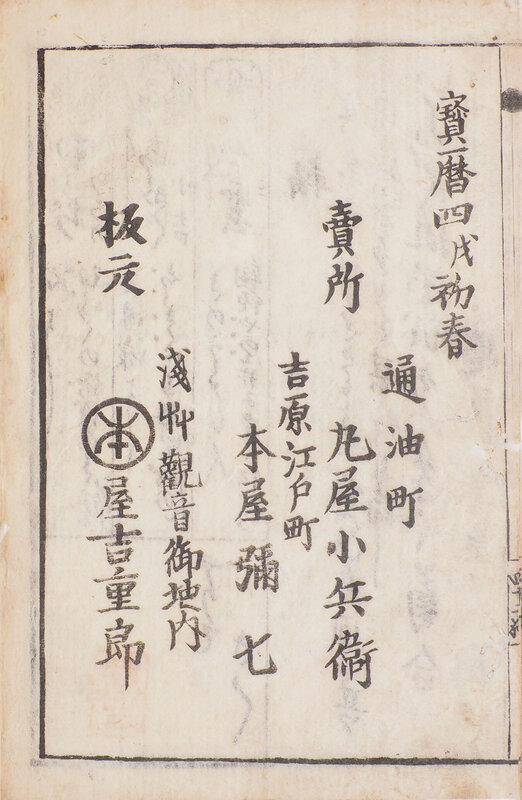 寶暦四戌初春
賣所
通油町
丸屋小兵衞
吉原江戸町
本屋彌七
淺艸觀音御地内
板元
本屋吉重郎